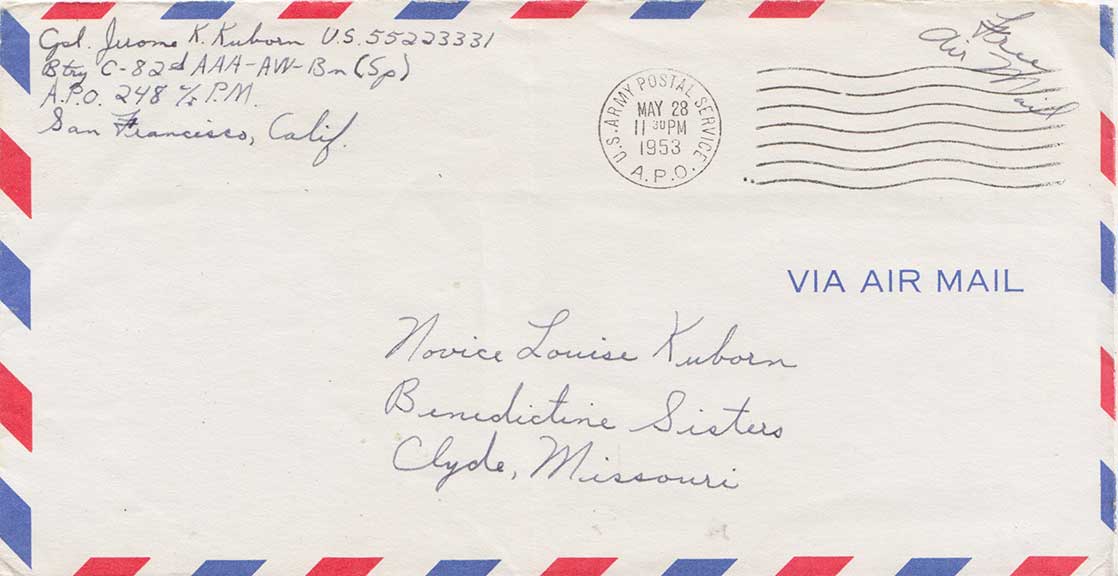 Cpl. Jerome K. Kuborn U.S. 55223331
Btry C-82d AAA-AW-Bn (Sp)
A.P.O. 248 % P.M.
San Francisco, Calif.
Free
Air Mail
U.S. ARMY POSTAL SERVICE
MAY 28
11 30 PM
1953
A.P.O.
VIA AIR MAIL
Novice Louise Kuborn
Benedictine Sisters
Clyde, Missouri